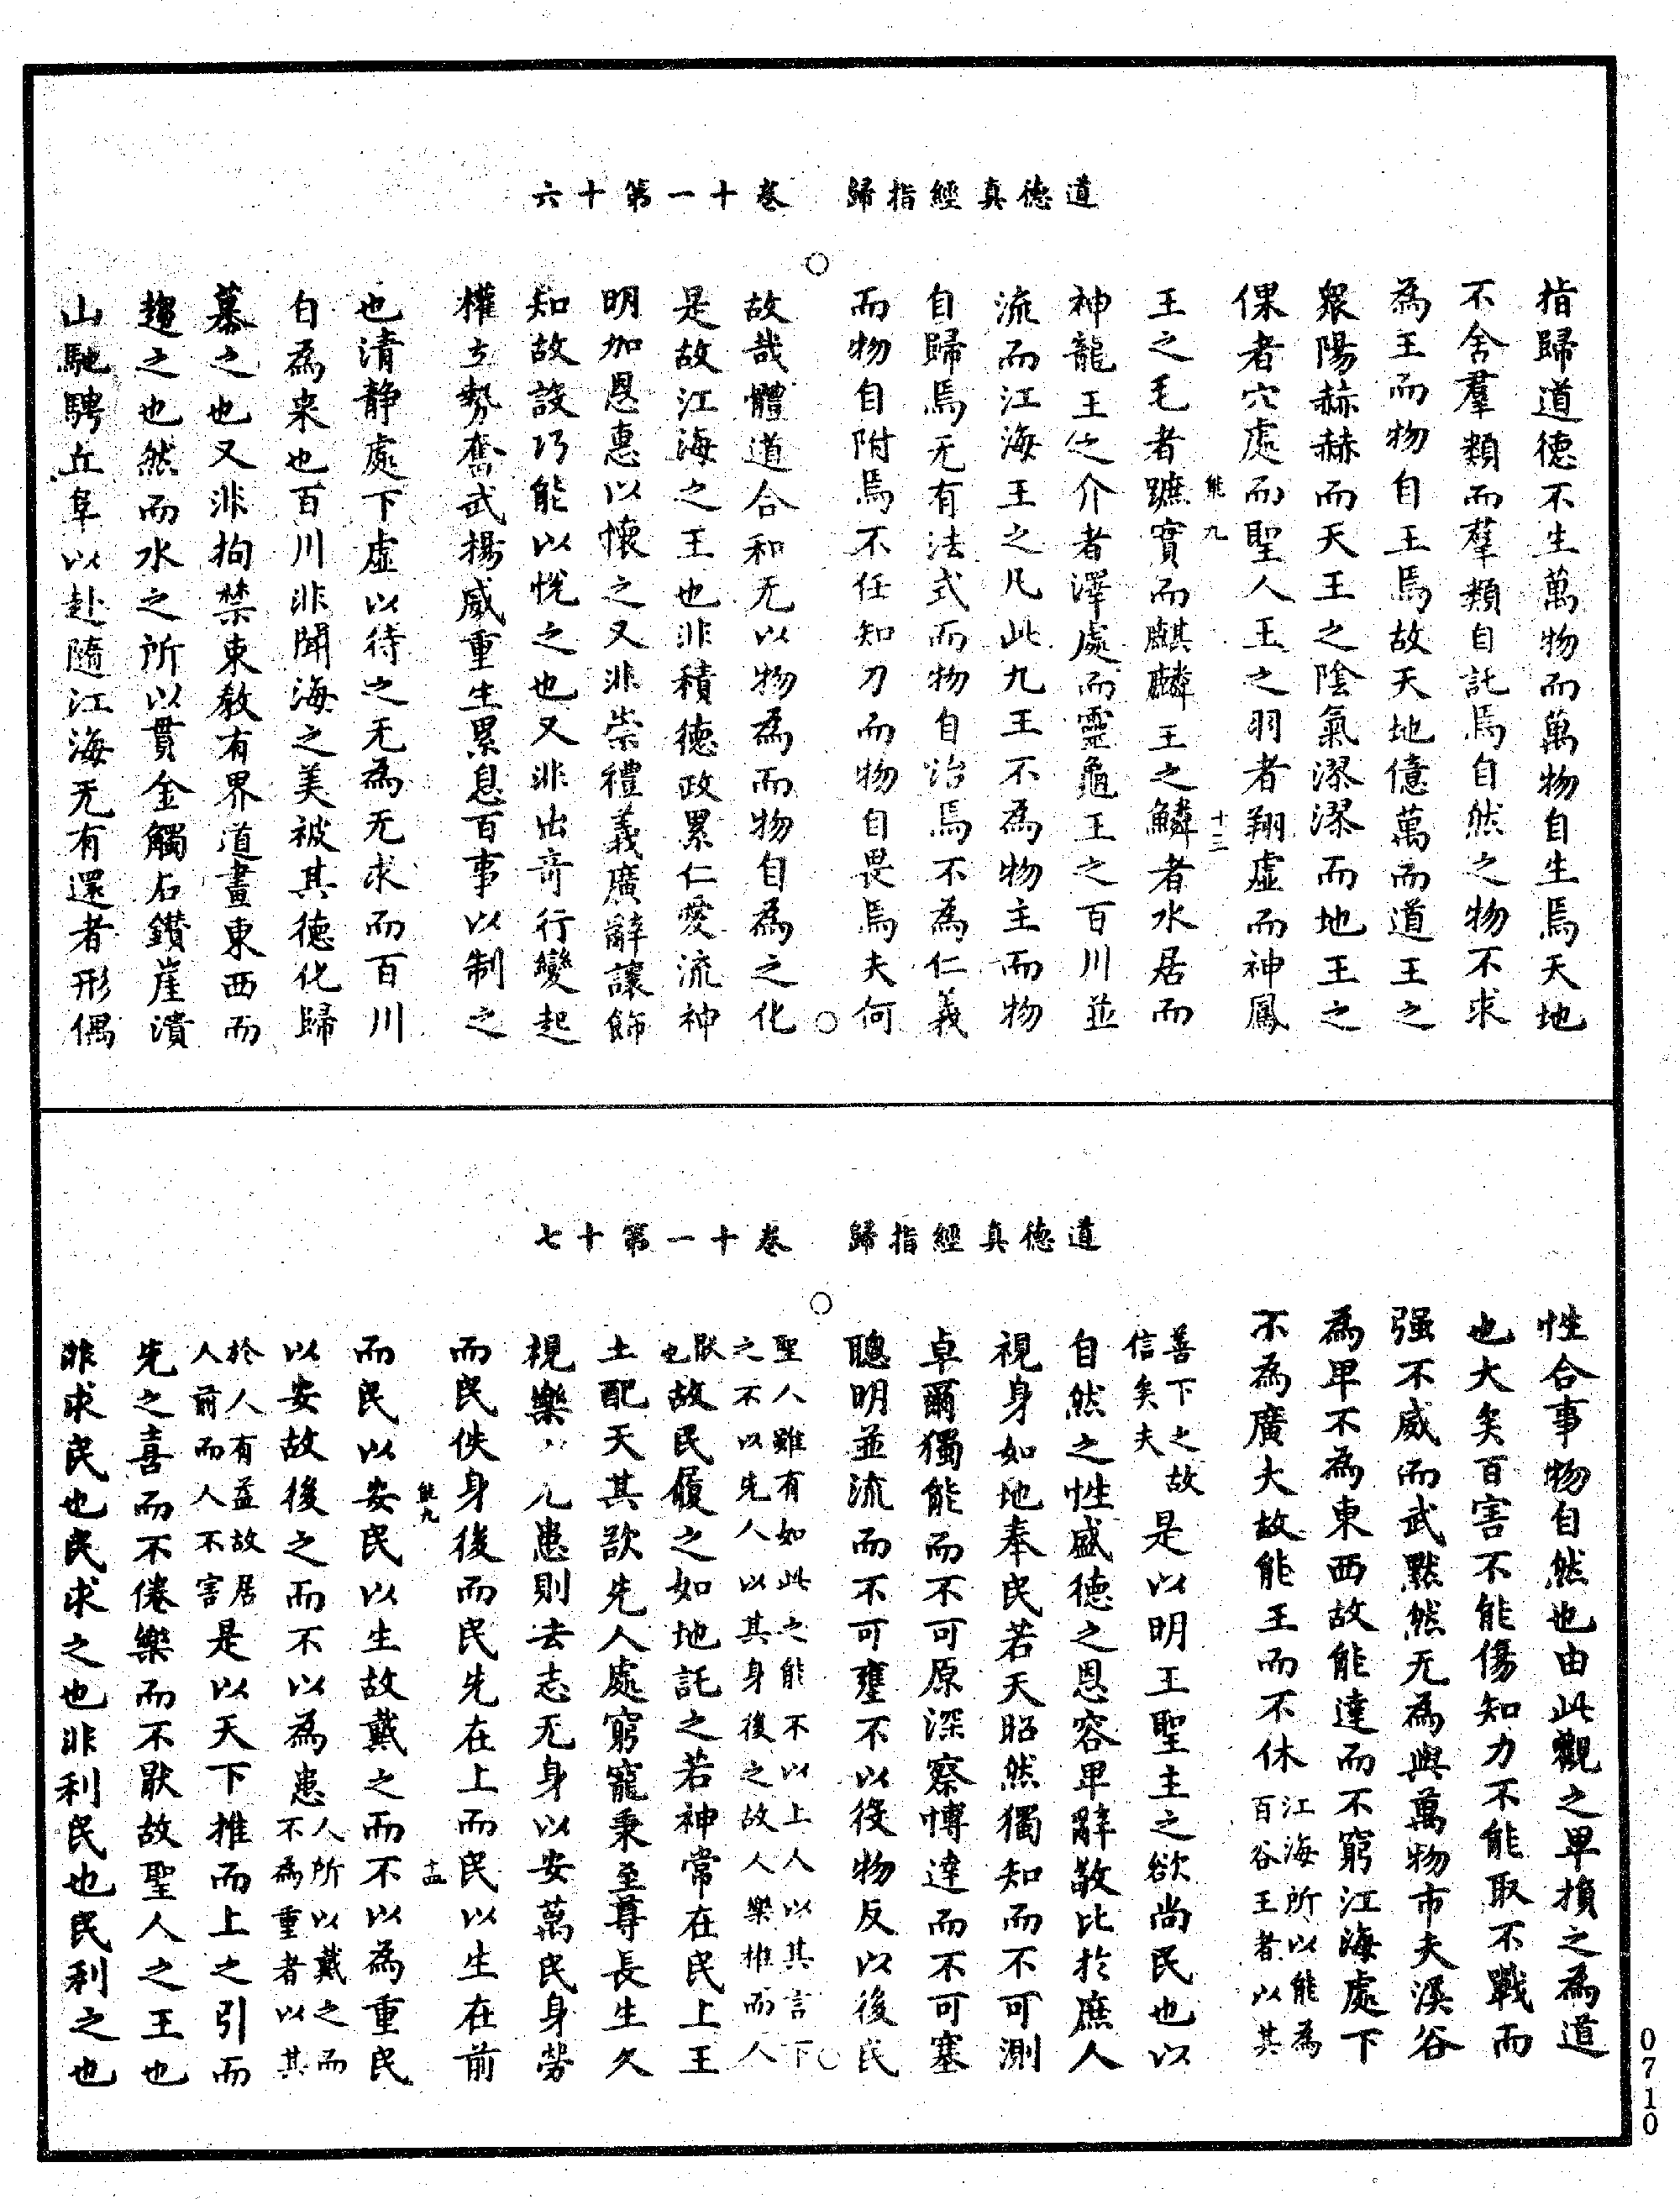 道德真經指歸　卷十一第十六
指歸道德不生萬物而萬物自生焉天地
不舍羣類而羣類自託焉自然之物不求
為王而物自王焉故天地億萬而道王之
眾陽赫赫而天王之陰氣漻漻而地王之
倮者穴處而聖人王之羽者翔虛而神鳳
能九　十三
王之毛者蹠實而麒麟王之鱗者水居而
神龍王之介者澤處而靈龜王之百川並
流而江海王之凡此九王不為物主而物
自歸焉无有法式而物自治焉不為仁義
而物自附焉不任知力而物自畏焉夫何
故哉體道合和无以物為而物自為之化
是故江海之王也非積德政累仁愛流神
明加恩惠以懷之又非崇禮義廣辭讓飾
知故設巧能以悅之也又非出奇行變起
權立勢奮武揚威重生累息百事以制之
也清靜處下虛以待之无為无求而百川
自為來也百川非聞海之美被其德化歸
慕之也又非拘禁束教有界道畫東西而
趨之也然而水之所以貫金觸石鑽崖潰
山馳騁丘阜以赴隨江海无有還者形偶
道德真經指歸　卷十一第十七
性合事物自然也由此觀之卑損之為道
也大矣百害不能傷知力不能取不戰而
强不威而武默然无為與萬物市夫溪谷
為卑不為東西故能達而不窮江海處下
不為廣大故能王而不休江海所以能為百谷王者以其
善下之故信矣夫是以明王聖主之欲尚民也以
自然之性盛德之恩容卑辭敬比於庶人
視身如地奉民若天昭然獨知而不可測
卓爾獨能而不可原深察博達而不可塞
聰明並流而不可壅不以役物反以後民
聖人雖有如此之能不以上人以其言下之不以先人以其身後之故人樂推而人
厭也故民履之如地託之若神常在民上王
土配天其欲先人處窮寵秉至尊長生久
視樂八九患則去志无身以安萬民身勞
而民佚身後而民先在上而民以生在前
能九　十四
而民以安民以生故戴之而不以為重民
以安故後之而不以為患人所以戴之而不為重者以其
於人有益故居人前而人不害是以天下推而上之引而
先之喜而不倦樂而不厭故聖人之王也
非求民也民求之也非利民也民利之也
0710